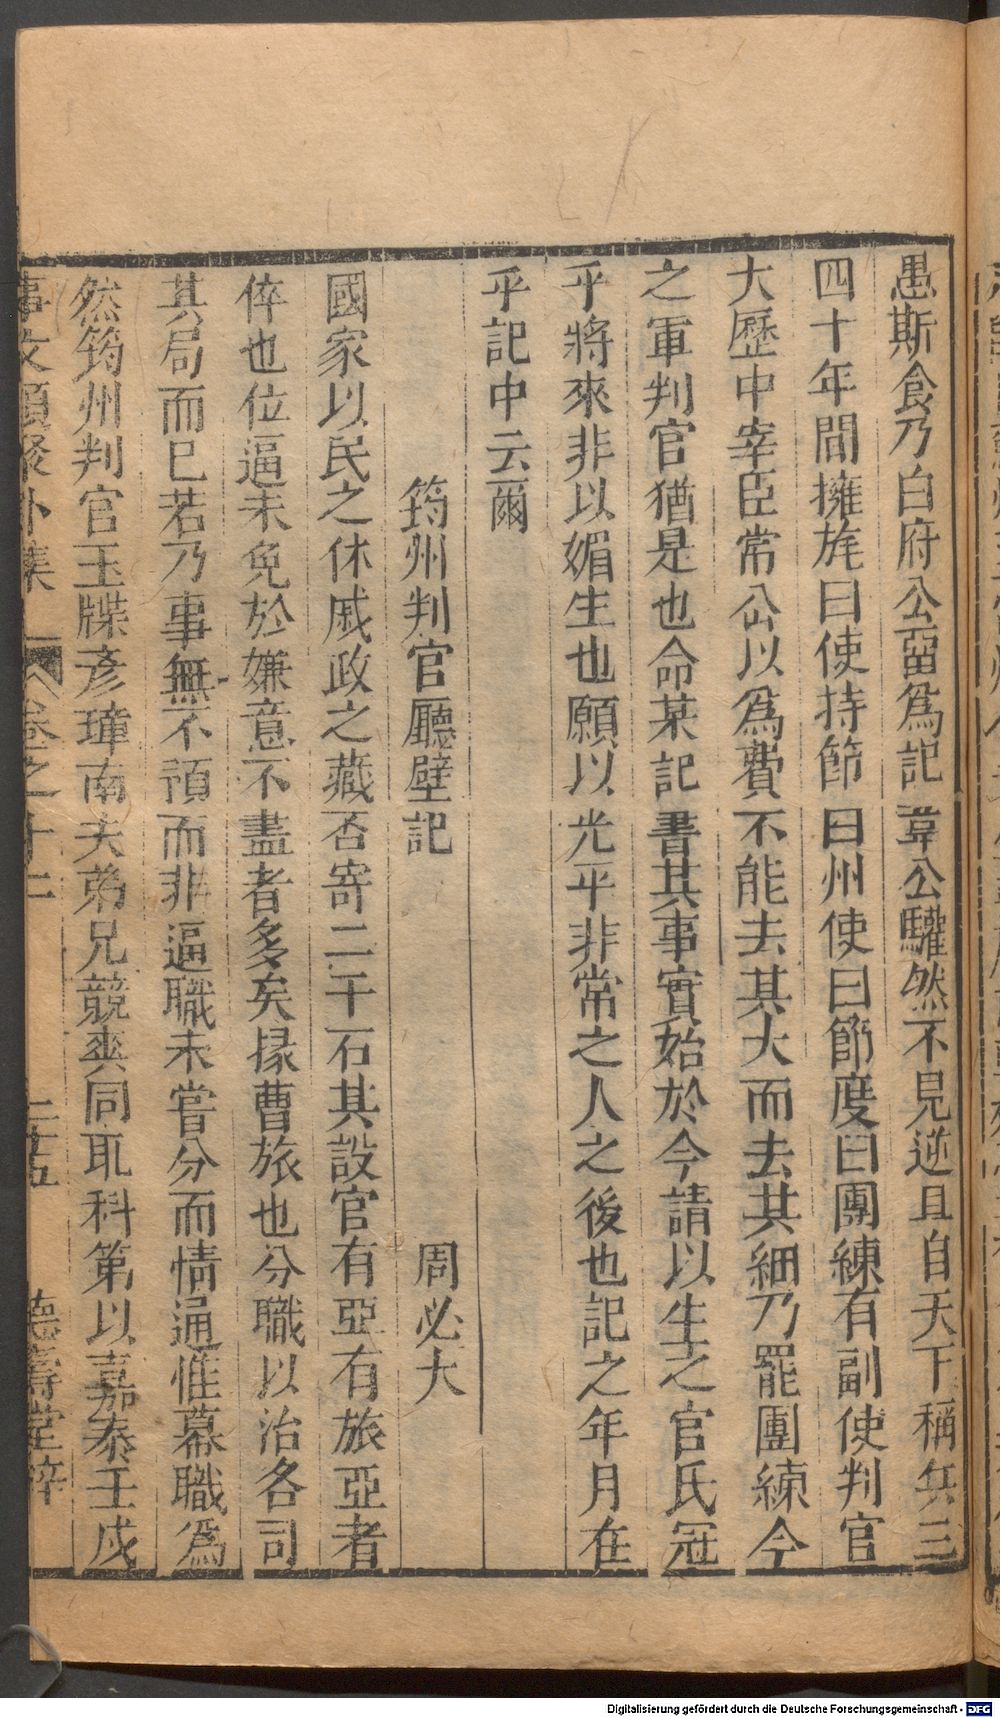 愚斯食乃白府公畱爲記韋公驩然不見逆且自天下稱兵三
四十年間擁旄曰使持節曰州使曰節度曰團練有副使判官
大歷中宰臣常公以爲費不能去其大而去其細乃罷團練今
之軍判官猶是也命某記書其事實始於今請以生之官氏冠
乎將來非以媚生也願以光平非常之人之後也記之年月在
乎記中云爾
筠州判官廳壁記 周必大
國家以民之休戚政之藏否寄二千石其設官有亞有旅亞者
倅也位逼未免於嫌意不盡者多矣掾曹旅也分職以治各司
其局而已若乃事無不預而非逼職未嘗分而情通惟幕職爲
然筠州判官玉牒彥瑋南夫弟兄競爽同取科第以嘉泰壬戌
事文類聚外集 卷之十二 二十五 德壽堂梓
Digitalisierung gefördert durch die Deutsche Forschungsgemeinschaft - DFG